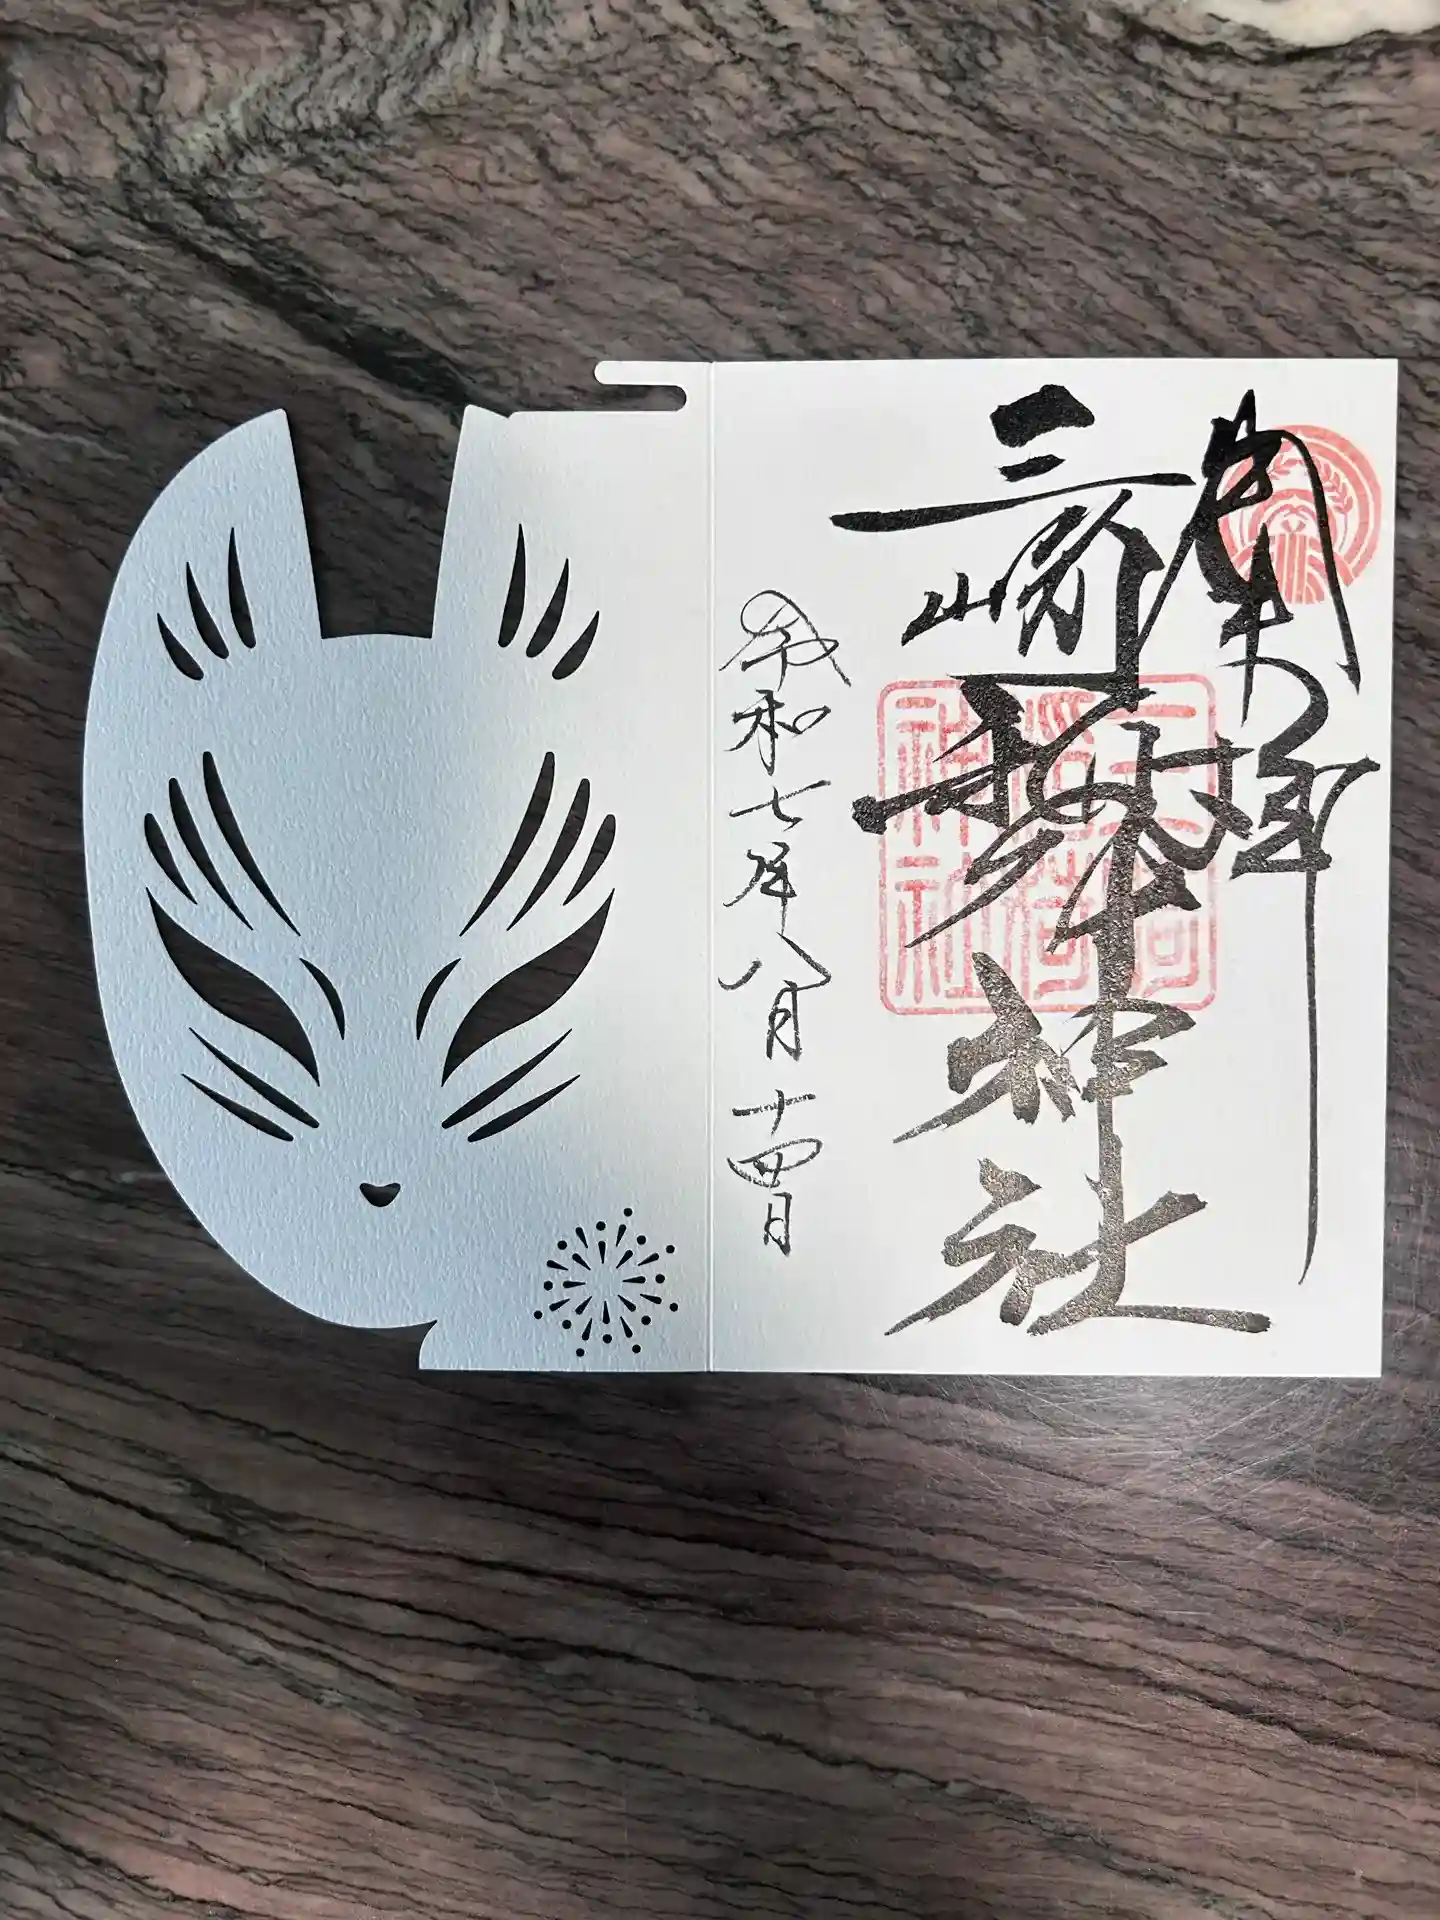 関東総社
三崎稲荷神社
三崎稲荷神社
令和七年八月十四日